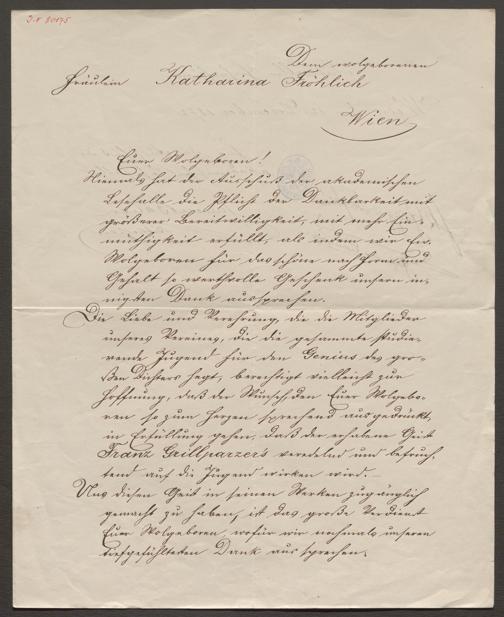 I.N 80175
Dem wolgeborenen
Fräulein Katharina Fröhlich
Wien
Euer Wolgeboren!
Niemals hat der Ausschuß der akademischen
Lesehalle die Pflicht der Dankbarkeit mit
größerer Bereitwilligkeit, mit mehr Ein-
müthigkeit erfüllt, als indem wir Eu.
Wolgeboren für das schöne nach Form und
Gehalt so werthvolle Geschenk unsern in-
nigsten Dank aussprechen.
Die Liebe und Verehrung, die die Mitglieder
unseres Vereines, die die gesammte studie-
rende Jugend für den Genius des gro-
ßen Dichters hegt, berechtigt vielleicht zur
Hoffnung, daß der Wunsch, den Euer Wolgebo-
ren so zum Herzen sprechend ausgedrückt,
in Erfüllung gehen, daß der erhabene Geist
Franz Grillparzers veredelnd und befruch-
tend auf die Jugend wirken wird.
Uns diesen Geist in seinen Werken zugänglich
gemacht zu haben, ist das große Verdienst
Euer Wolgeboren, wofür wir nochmals unseren
tiefgefühltesten Dank aussprechen.